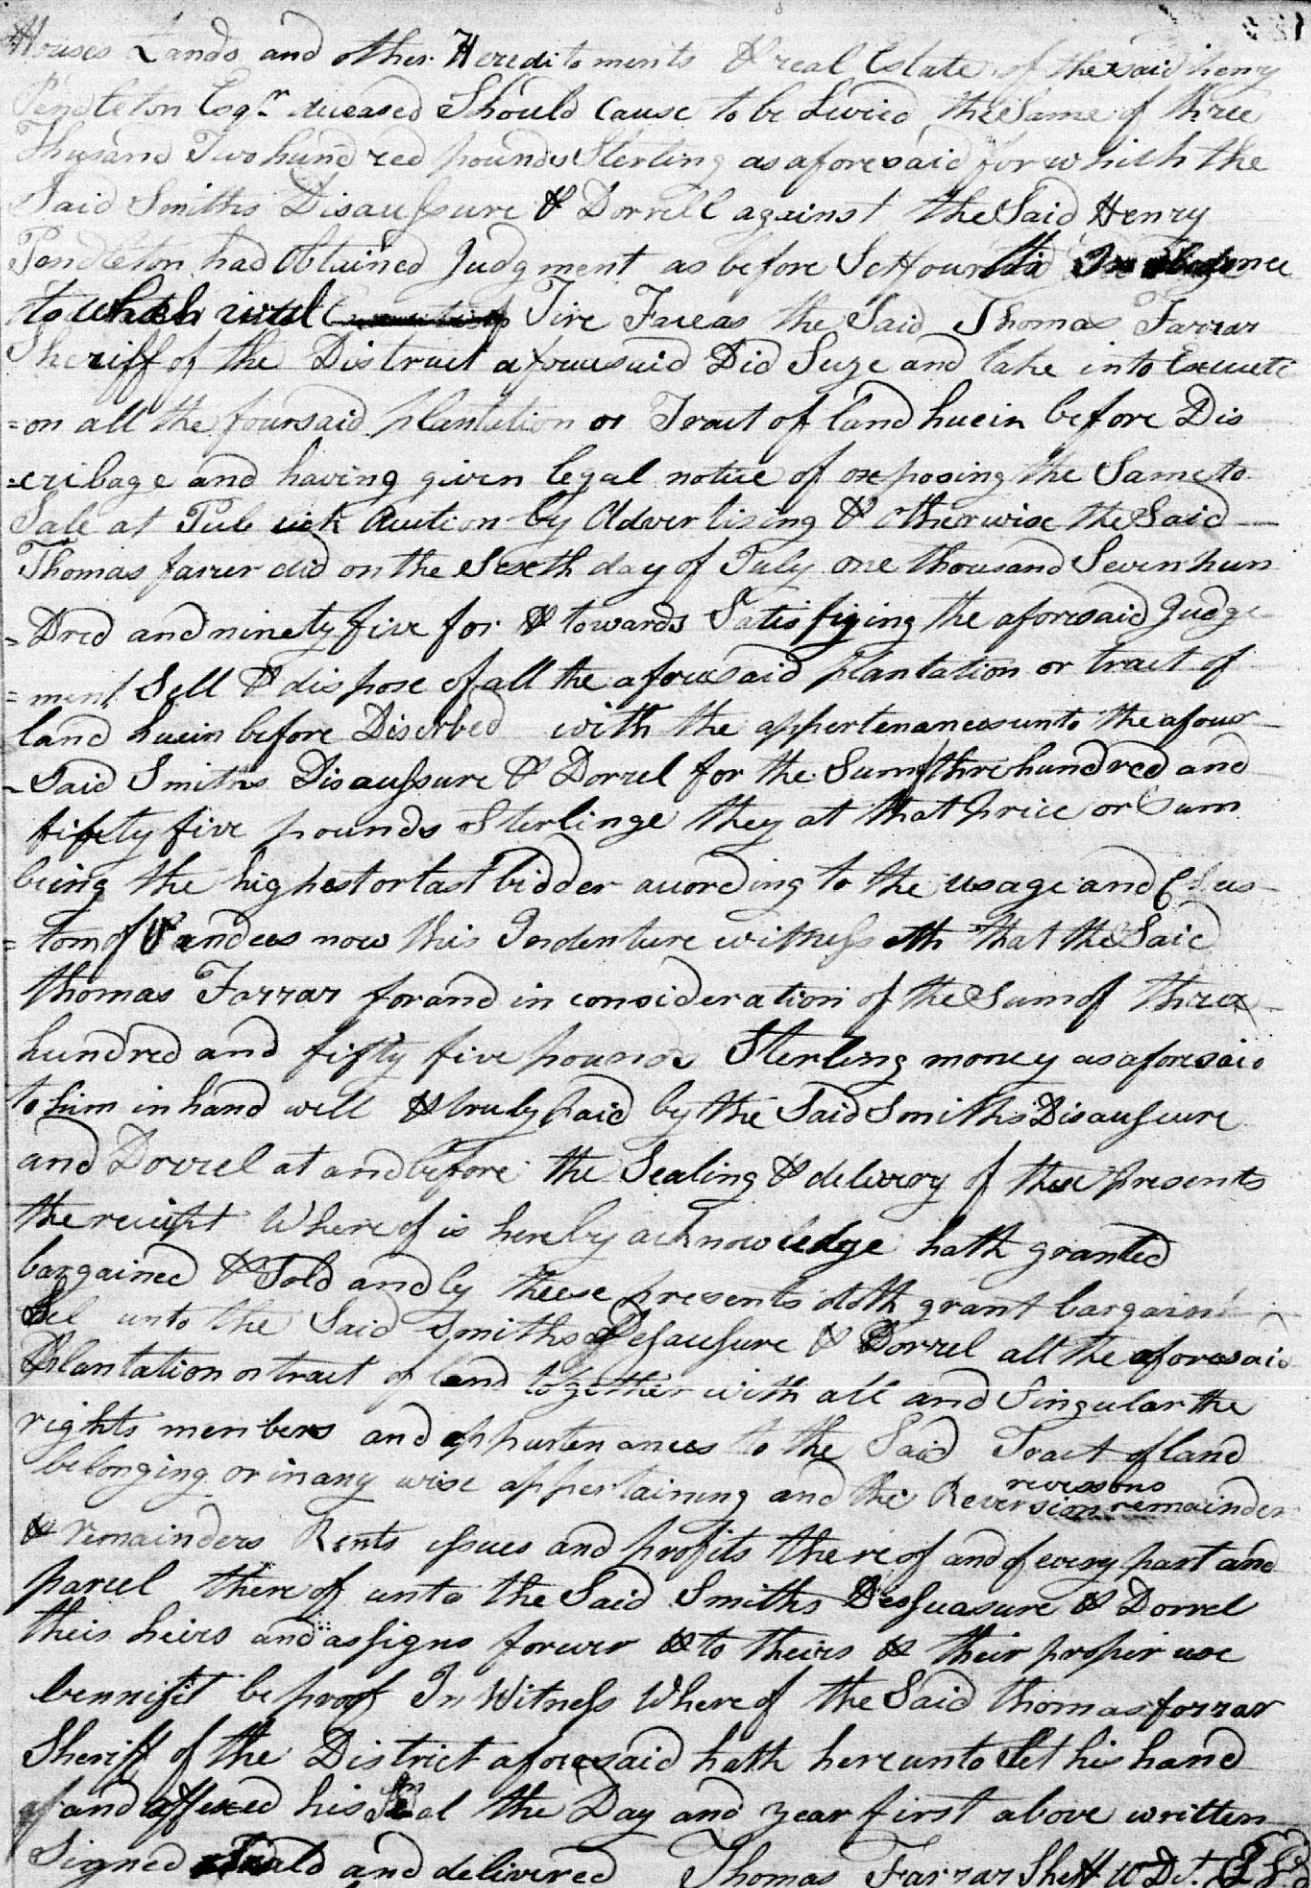 Houses Lands and other Hereditements & real Estate of the said henry
Pendleton Esqr. deceased Should Cause to be Livied the Same of three
Thusand Two hundred pounds Sterling as aforesaid for which the
Said Smiths Disaussure & Dorrell against the Said Henry
Pendleton had Obtained Judgment as before Setfourth In obedience
to which writ Fire Facas the Said Thomas Farrar
Sheriff of the District aforesaid Did Seize and take into Executi
=on all the foursaid plantation or Tract of land herein before Dis
=cribage and having given legal notice of exposing the Same to
Sale at Publick Auction by Advertising & Otherwise the Said
Thomas farrer did on the Sixth day of July one thousand Seven hun
=Dred and ninety five for & towards Satisfiying the aforesaid Judge
=ment Sell & dispose of all the aforesaid plantation or tract of
land herein before Discrbed with the appertenances unto the afour
-Said Smiths Disaussure & Dorrel for the Sum of thre hundred and
fifety five pounds Sterlinge they at that Price or Sum
being the highest or last bidder auording to the usage and Cus
=tom of Vandues now this Indenture witnesseth that the Said
thomas Farrar for and in consideration of the Sum of three
hundred and fifty five pounds Sterling money as aforesaid
to him in hand well & truly paid by the Said Smiths Disausure
and Dorrel at and before the Sealing & delivery of these presents
the receipt Where of is hereby acknowledge hath granted
bargained & Sold and by these presents doth grant bargain
Sel unto the Said Smiths Desausure & Dorrel all the aforesaid
Plantation or tract of land together with all and Singular the
rights members and appurtenances to the Said Tract of land
belonging or in any wise appertaining and the Reversion remainder
& remainders Rents issues and profits there of and of every part and
parcel there of unto the Said Smiths Dessuasure & Dorrel
theis heirs and assigns forever & to theirs & their proper use
bennifit be proof In Witness Where of the Said thomas forrar
Sheriff of the District aforesaid hath here unto Set his hand
and affixed his Seal the Day and year first above written
Signed Seald and delivered Thomas Farrar Sheff W Dt. L S